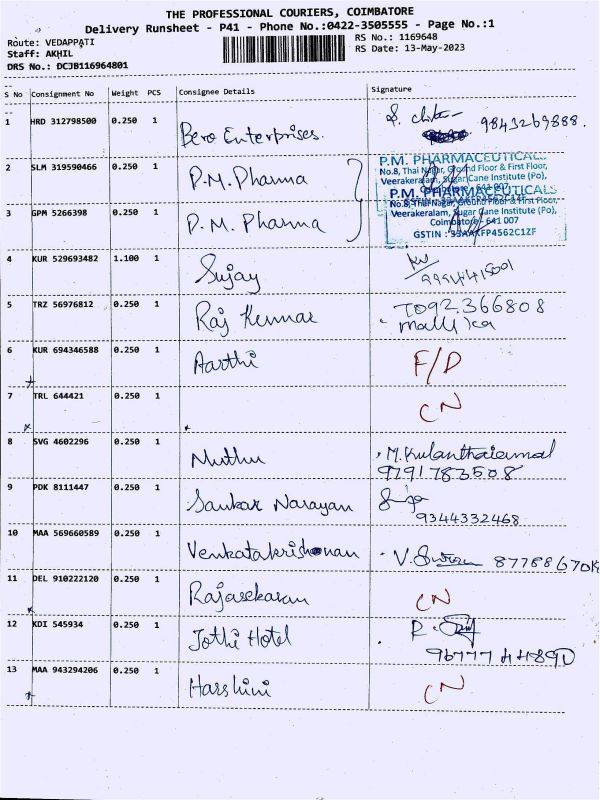 THE PROFESSIONAL COURIERS, COIMBATORE
Delivery Runsheet - P41 - Phone No.:0422-3505555 - Page No.:1
Route: VEDAPPATI
Staff: AKHIL
DRS No.: DCJB116964801
RS No.: 1169648
RS Date: 13-May-2023
S No Consignment No Weight PCS Consignee Details Signature
1 HRD 312798500 0.250 1 Bero Enterprises. 9843269888.
2 SLM 319590466 0.250 1 P.M. Pharma
P.M. PHARMACEUTICALS
No.8, Thai Nagar, Ground Floor & First Floor,
Veerakeralam, Sugar Cane Institute (Po),
Coimbatore - 641 007
3 GPM 5266398 0.250 1 P.M. Pharma
P.M. PHARMACEUTICALS
No.8, Thai Nagar, Ground Floor & First Floor,
Veerakeralam, Sugar Cane Institute (Po),
Coimbatore - 641 007
4 KUR 529693482 1.100 1 Sujay
5 TRZ 56976812 0.250 1 Raj Kumar
Mallika
6 KUR 694346588 0.250 1 Aarthi F/D
7 TRL 644421 0.250 1 CN
8 SVG 4602296 0.250 1 Muthu
9791783508
9 PDK 8111447 0.250 1 Sankar Narayan
9344332468
10 MAA 569660589 0.250 1 Venkatakrishnan
11 DEL 910222120 0.250 1 Rajasekaran CN
12 KDI 545934 0.250 1 Jothi Hotel
13 MAA 943294206 0.250 1 Harshini CN